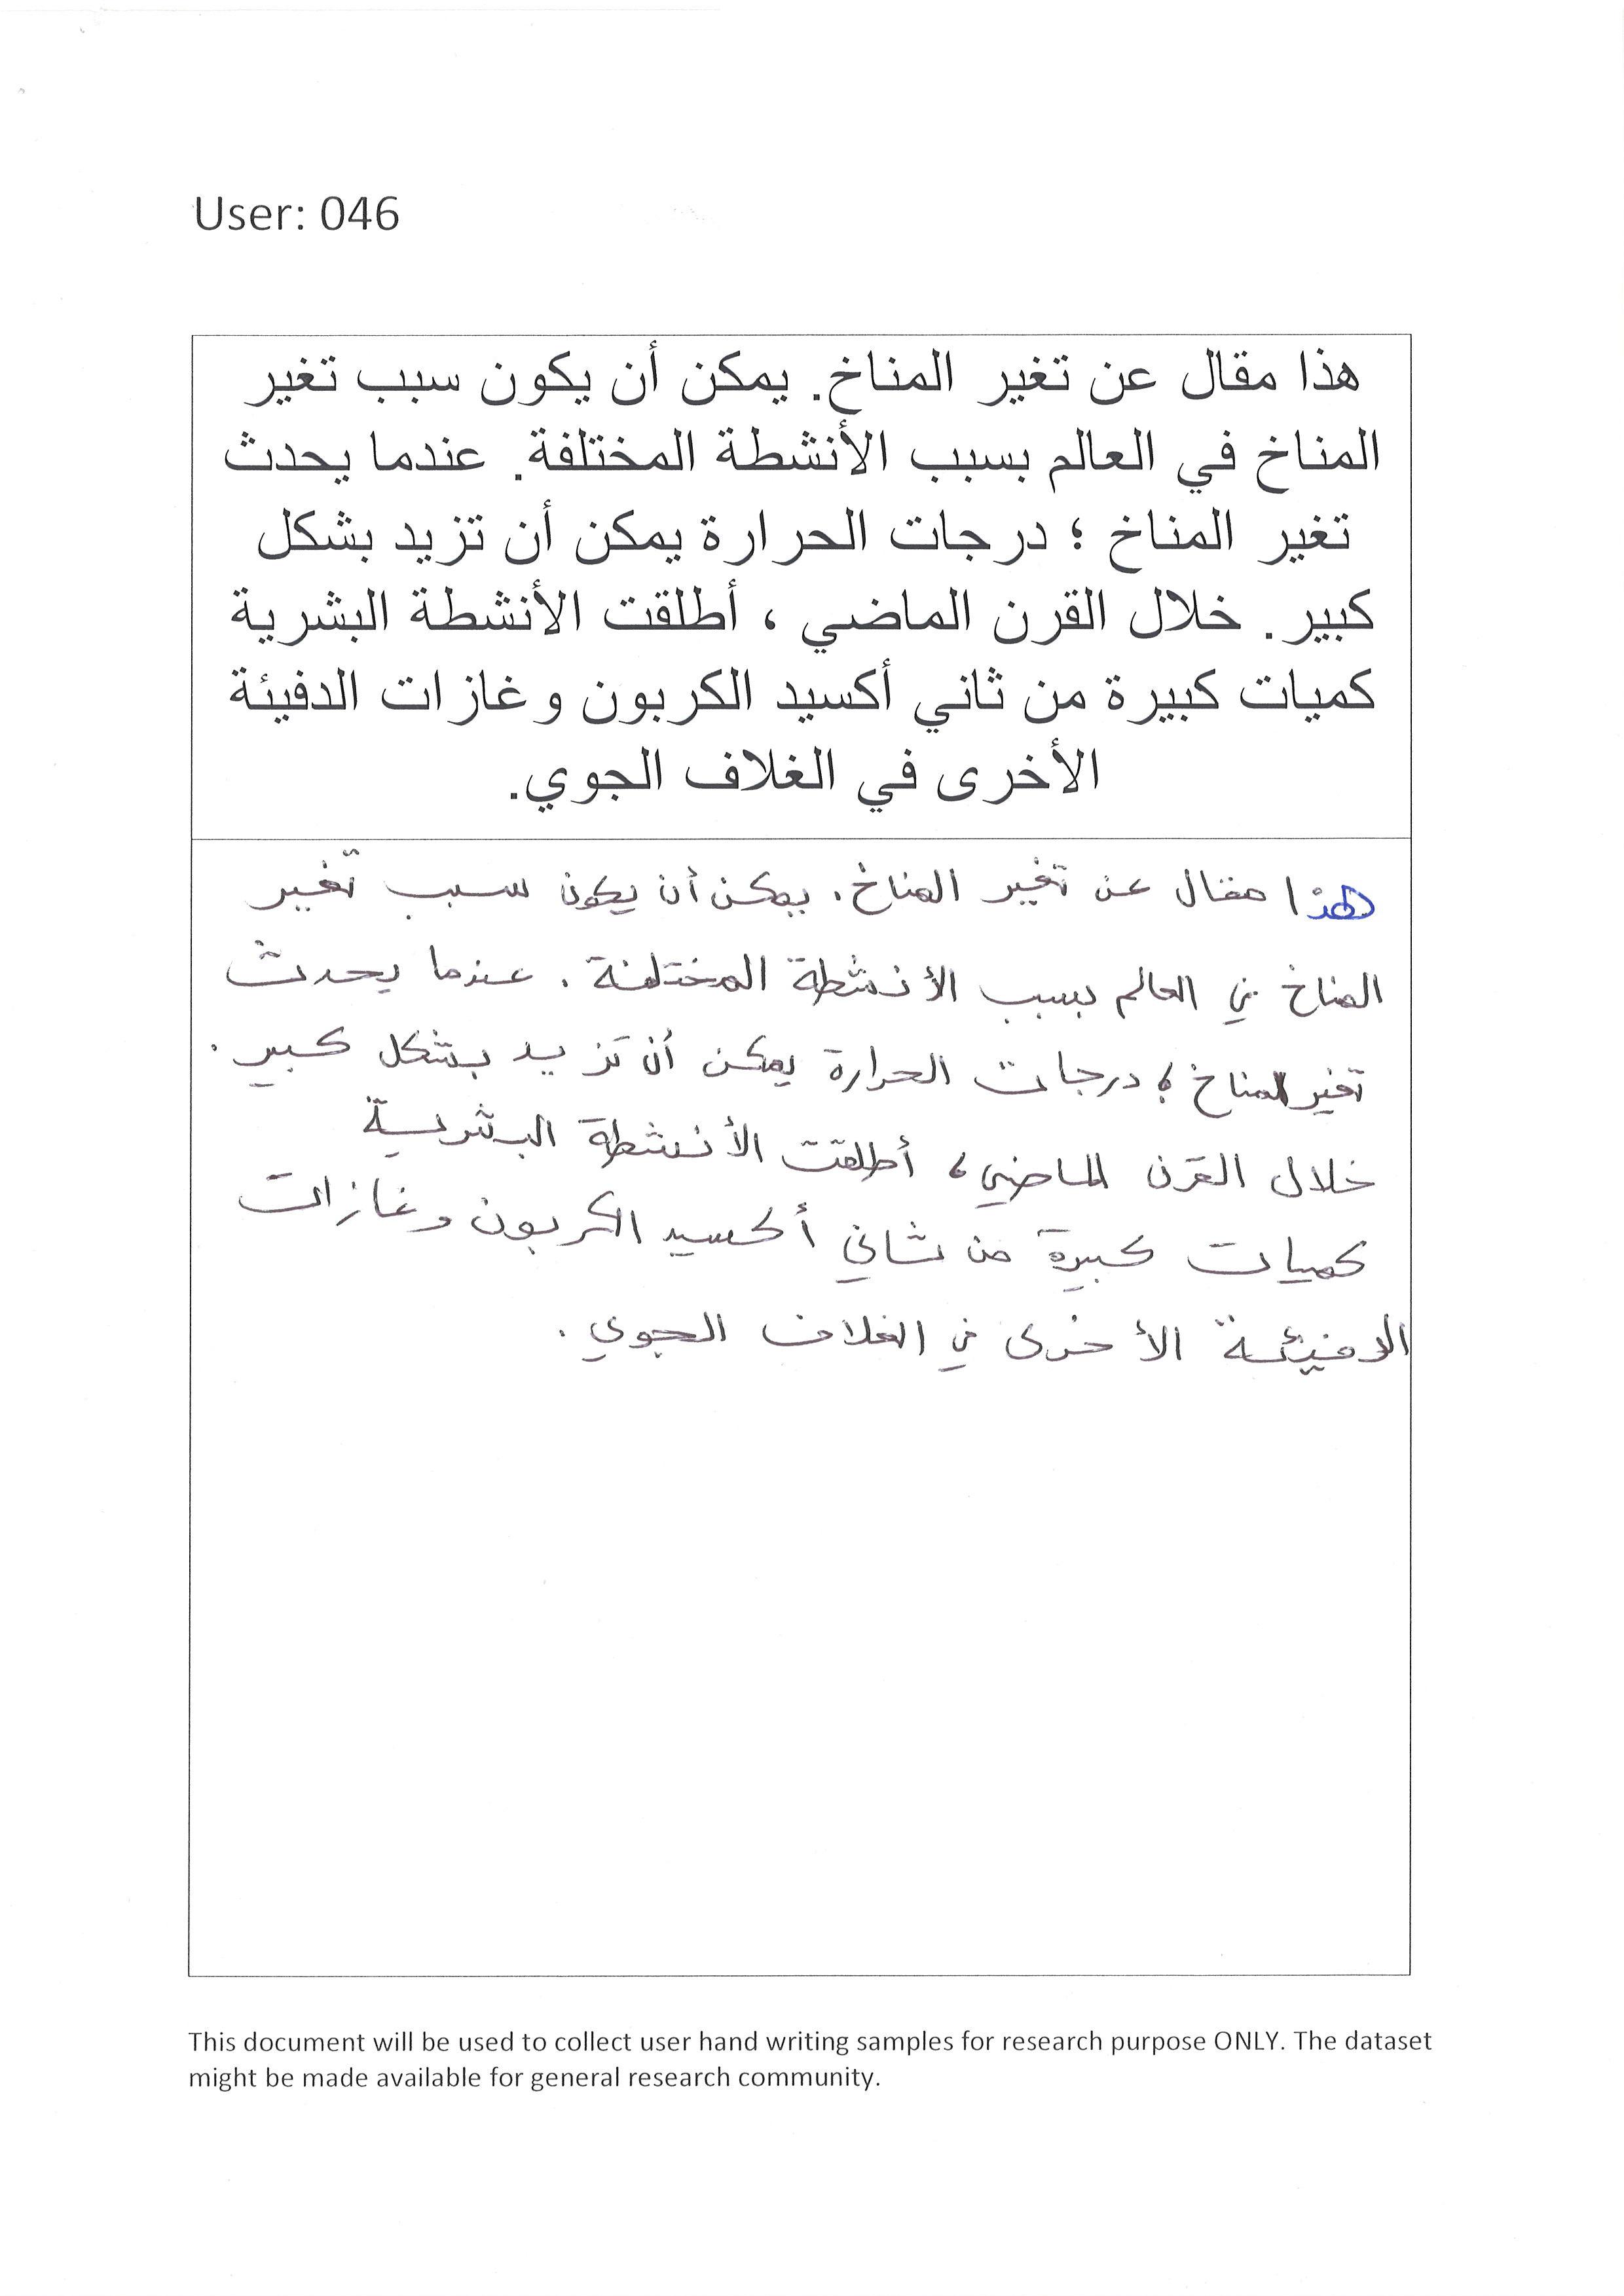 User: 046
هذا مقال عن تغير المناخ. يمكن أن يكون سبب تغير
المناخ في العالم بسبب الأنشطة المختلفة. عندما يحدث
تغير المناخ ؛ درجات الحرارة يمكن أن تزيد بشكل
كبير. خلال القرن الماضي ، أطلقت الأنشطة البشرية
كميات كبيرة من ثاني أكسيد الكربون وغازات الدفيئة
الأخرى في الغلاف الجوي.
هذا مقال عن تغير المناخ. يمكن أن يكون سبب تغير
المناخ في العالم بسبب الأنشطة المختلفة. عندما يحدث
تغير المناخ ؛ درجات الحرارة يمكن أن تزيد بشكل كبير.
خلال القرن الماضي، أطلقت الأنشطة البشرية
كميات كبيرة من ثاني أكسيد الكربون وغازات
الدفيئة الأخرى في الغلاف الجوي.
This document will be used to collect user hand writing samples for research purpose ONLY. The dataset
might be made available for general research community.